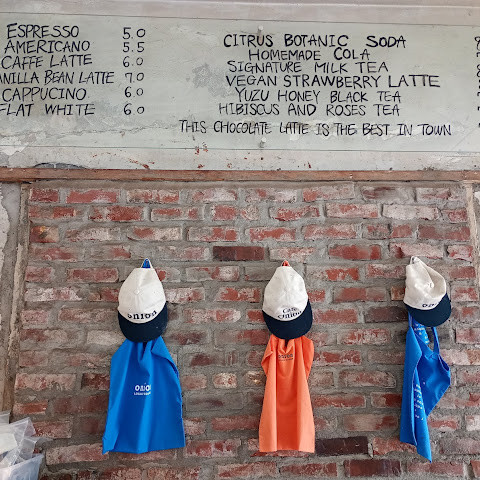 ESPRESSO 5.0
AMERICANO 5.5
CAFFE LATTE 6.0
ANILLA BEAN LATTE 7.0
CAPPUCINO 6.0
FLAT WHITE 6.0
CITRUS BOTANIC SODA
HOMEMADE COLA
SIGNATURE MILK TEA
VEGAN STRAWBERRY LATTE
YUZU HONEY BLACK TEA
HIBISCUS AND ROSES TEA
THIS CHOCOLATE LATTE IS THE BEST IN TOWN